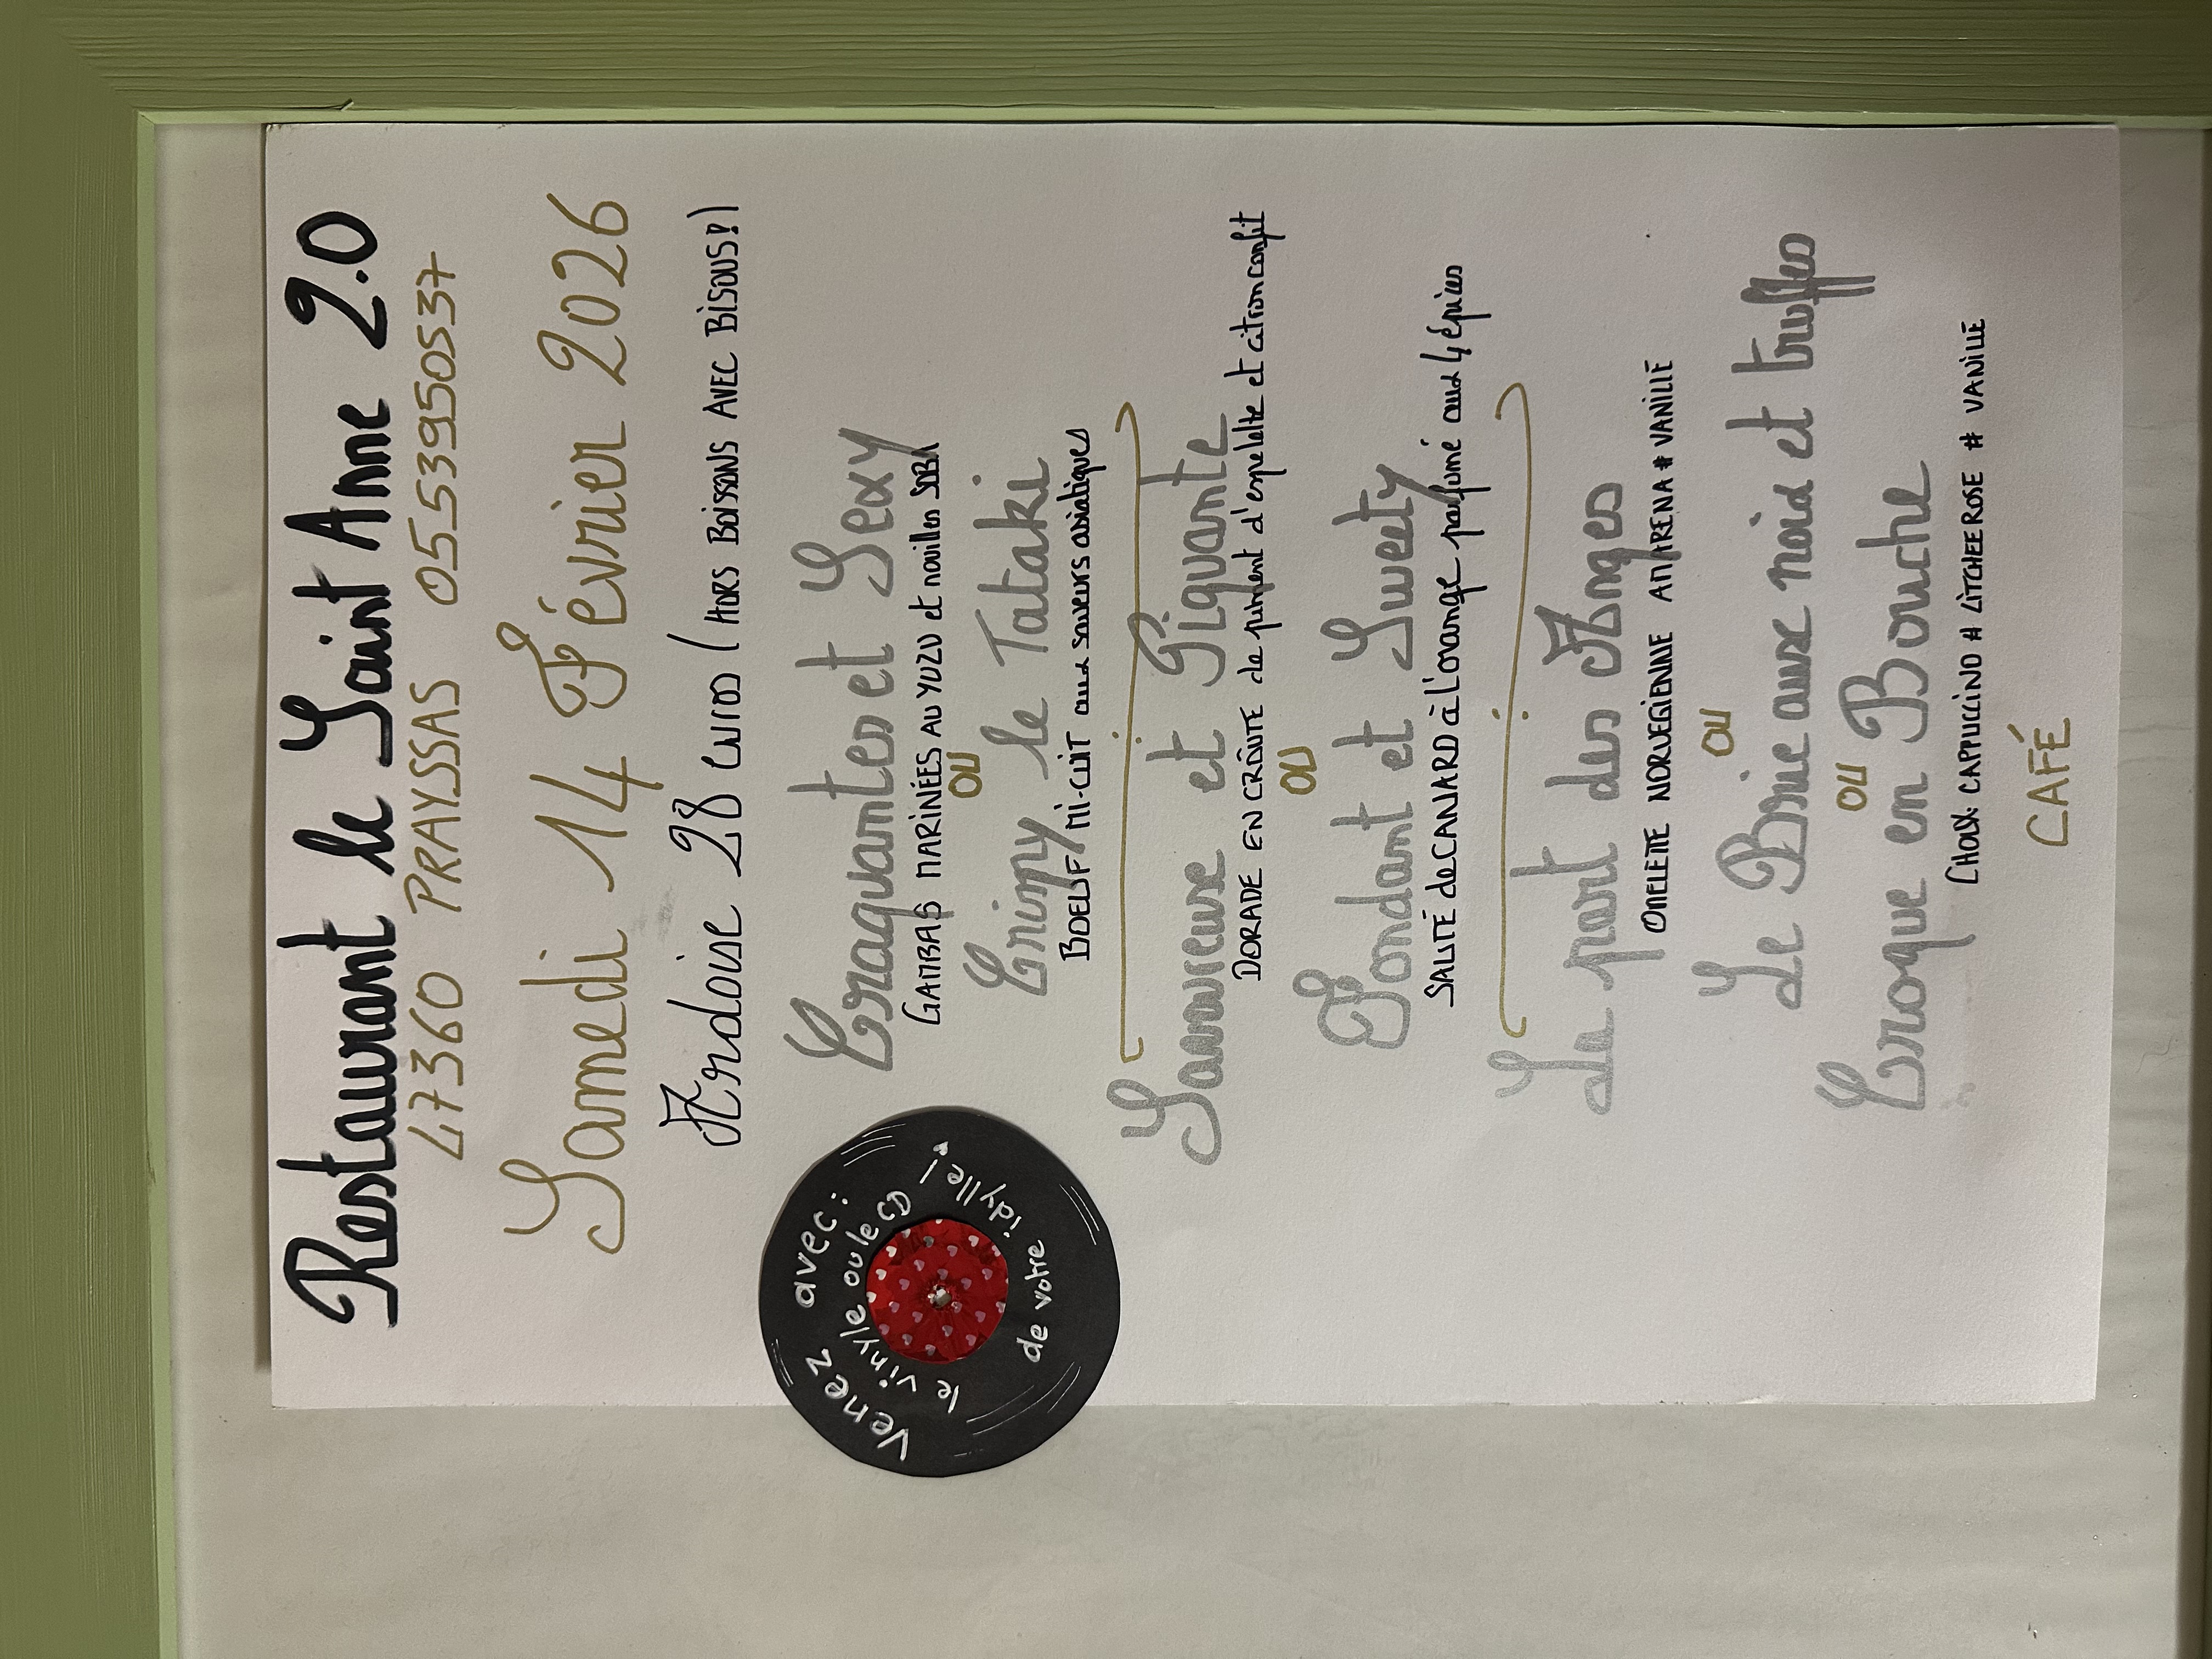 Restaurant le Saint Anne 2.0
47360 PRAYSSAS 0553950537
Samedi 14 Février 2026
Ardoise 28 euros (HORS BOISSONS AVEC BISOUS!)
Craquantes et Sexy
GAMBAS MARINÉES AU YUZU et nouilles SOBA
OU
Crimpy le Tataki
BOEUF MI-CUIT aux saveurs asiatiques
Savoureuse et Piquante
DORADE EN CROÛTE de piment d'espelette et citron confit
OU
Fondant et Sweety
SAUTÉ de CANARD à L'orange parfumé aux 4 épices
La part des Anges
OMELETTE NORVEGIENNE AMARENA # VANILLE
OU
Le Brie aux noix et truffes
OU
Croque en Bouche
CHOUX: CAPPUCCINO # LITCHEE ROSE # VANILLE
CAFÉ
Venez avec:
le vinyle ou le CD
de votre idylle!